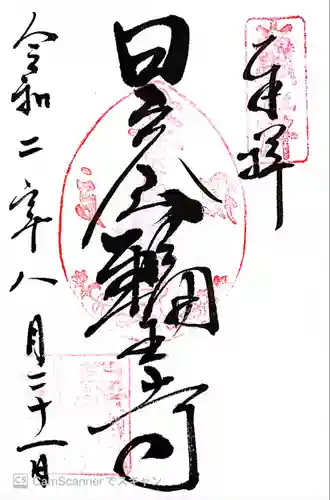 奉拝
日光山輪王寺
令和二年八月二十一日
CS CamScannerでスキャン